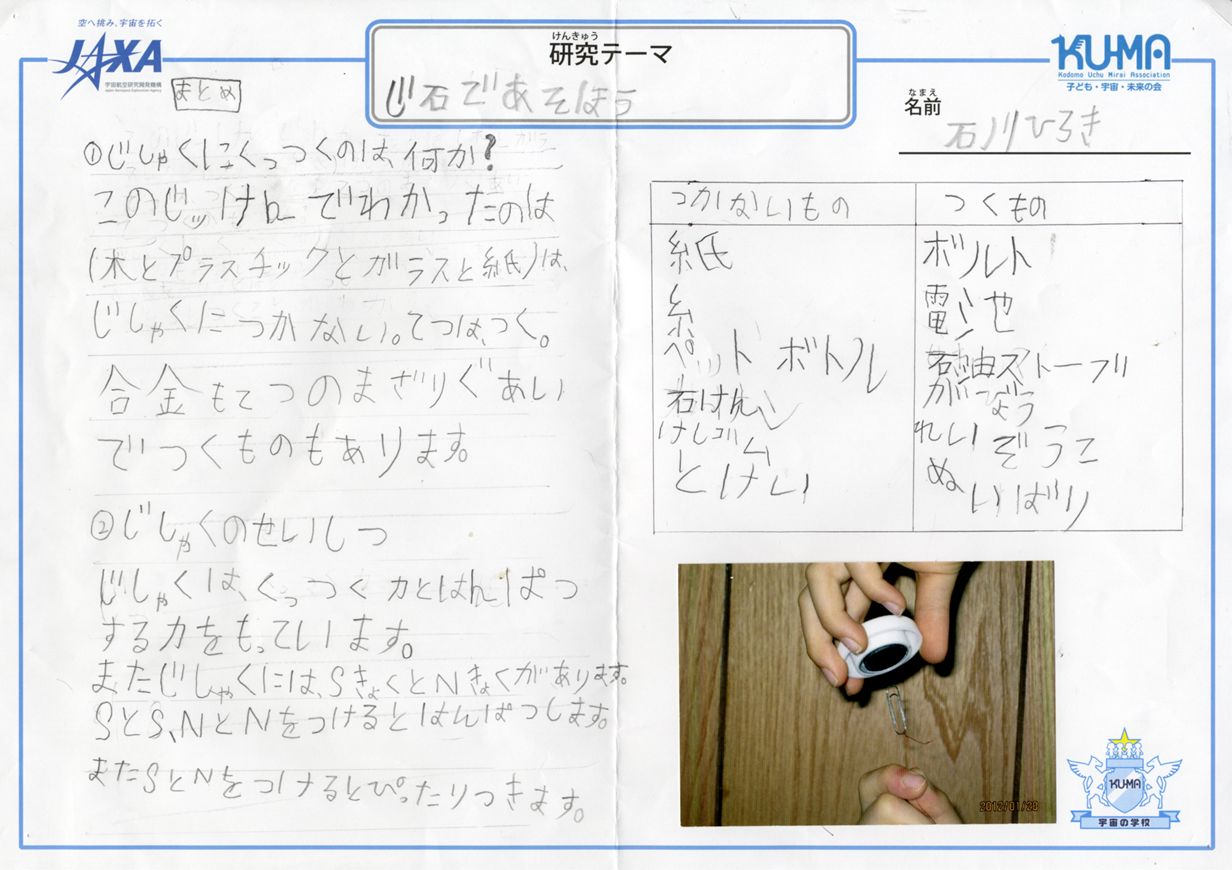 空へ挑み、宇宙を拓く
JAXA
宇宙航空研究開発機構
Japan Aerospace Exploration Agency
けんきゅう
研究テーマ
じ石であそぼう
KU-MA
Kodomo Uchu Mirai Association
子ども・宇宙・未来の会
なまえ
名前
石川ひろき
まとめ
①じしゃくにくっつくのは、何か?
このじッけんでわかったのは
(木とプラスチックとガラスと紙)は、
じしゃくにつかない。てつは、つく。
合金もてつのまざりぐあい
でつくものもあります。
②じしゃくのせいしつ
じしゃくは、くっつく力とはんぱつ
する力をもっています。
またじしゃくには、SきょくとNきょくがあります。
SとS、NとNをつけるとはんぱつします。
またSとNをつけるとぴったりつきます。
つかないもの
紙氏
糸
ペットボトル
石けん
けしゴム
とけい
つくもの
ボルト
電シせ
石油ストーブ
がびょう
れいぞうこ
ぬいばり
2012/01/28
KU-MA
宇宙の学校